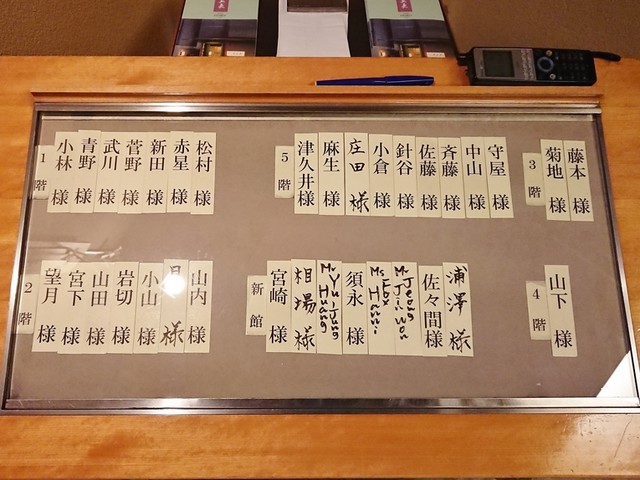 1階
小林 様
青野 様
武川 様
菅野 様
新田 様
赤星 様
松村 様
5階
津久井様
麻生 様
庄田 様
小倉 様
針谷 様
佐藤 様
斉藤 様
中山 様
守屋 様
3階
菊地 様
藤本 様
2階
望月 様
宮下 様
山田 様
岩切 様
小山 様
様
山内 様
新館
宮崎 様
相場 様
Mr Yu-jung
Huang
須永 様
Ms Fox
Mr Jeong
Jin won
佐々間様
浦澤 様
4階
山下 様